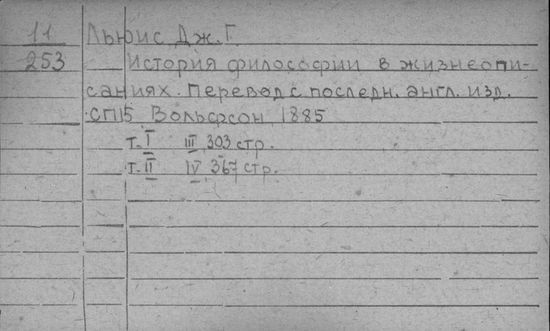 11 Льюис Дж. Г.
253 История философии в жизнеопи-
саниях. Перевод с последн. англ. изд.
СПБ Вольфсон 1885
т. I III, 303 стр.
т. II IV, 367 стр.